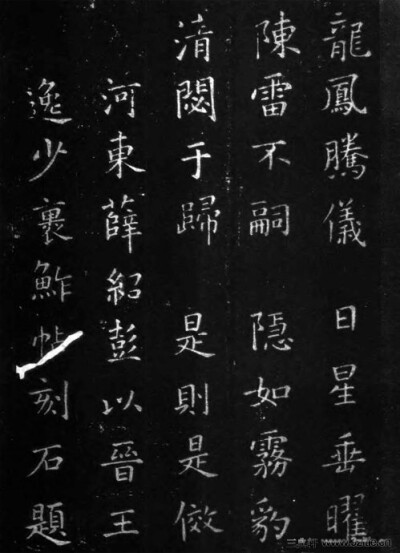 龍鳳騰儀 日星垂曜
陳雷不嗣 隱如霧豹
清閟于歸 是則是傚
河東薛紹彭以晉王
逸少裹鮓帖刻石題